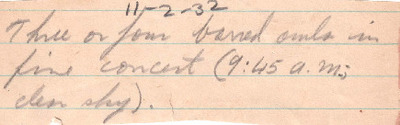 11-2-32
Three or four barred owls in
fine concert (9:45 a.m.;
clear sky).